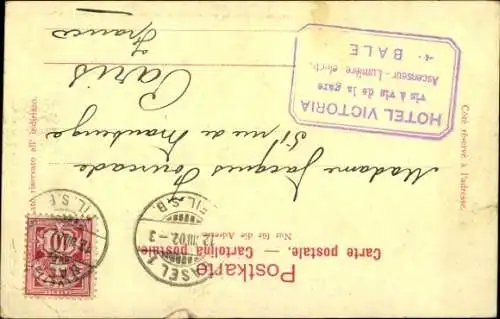 Postkarte
Carte postale. — Cartolina postale.
Nur für die Adresse.
Côté réservé à l'adresse.
Lato riservato all' indirizzo.
HOTEL VICTORIA
vis à vis de la gare
Ascenseur - Lumière électr.
BALE
Madame Jacques Fourcade
51 rue de Maubeuge
Paris
France
BASEL 1
12.III.02.-3
FIL.S.B.
10